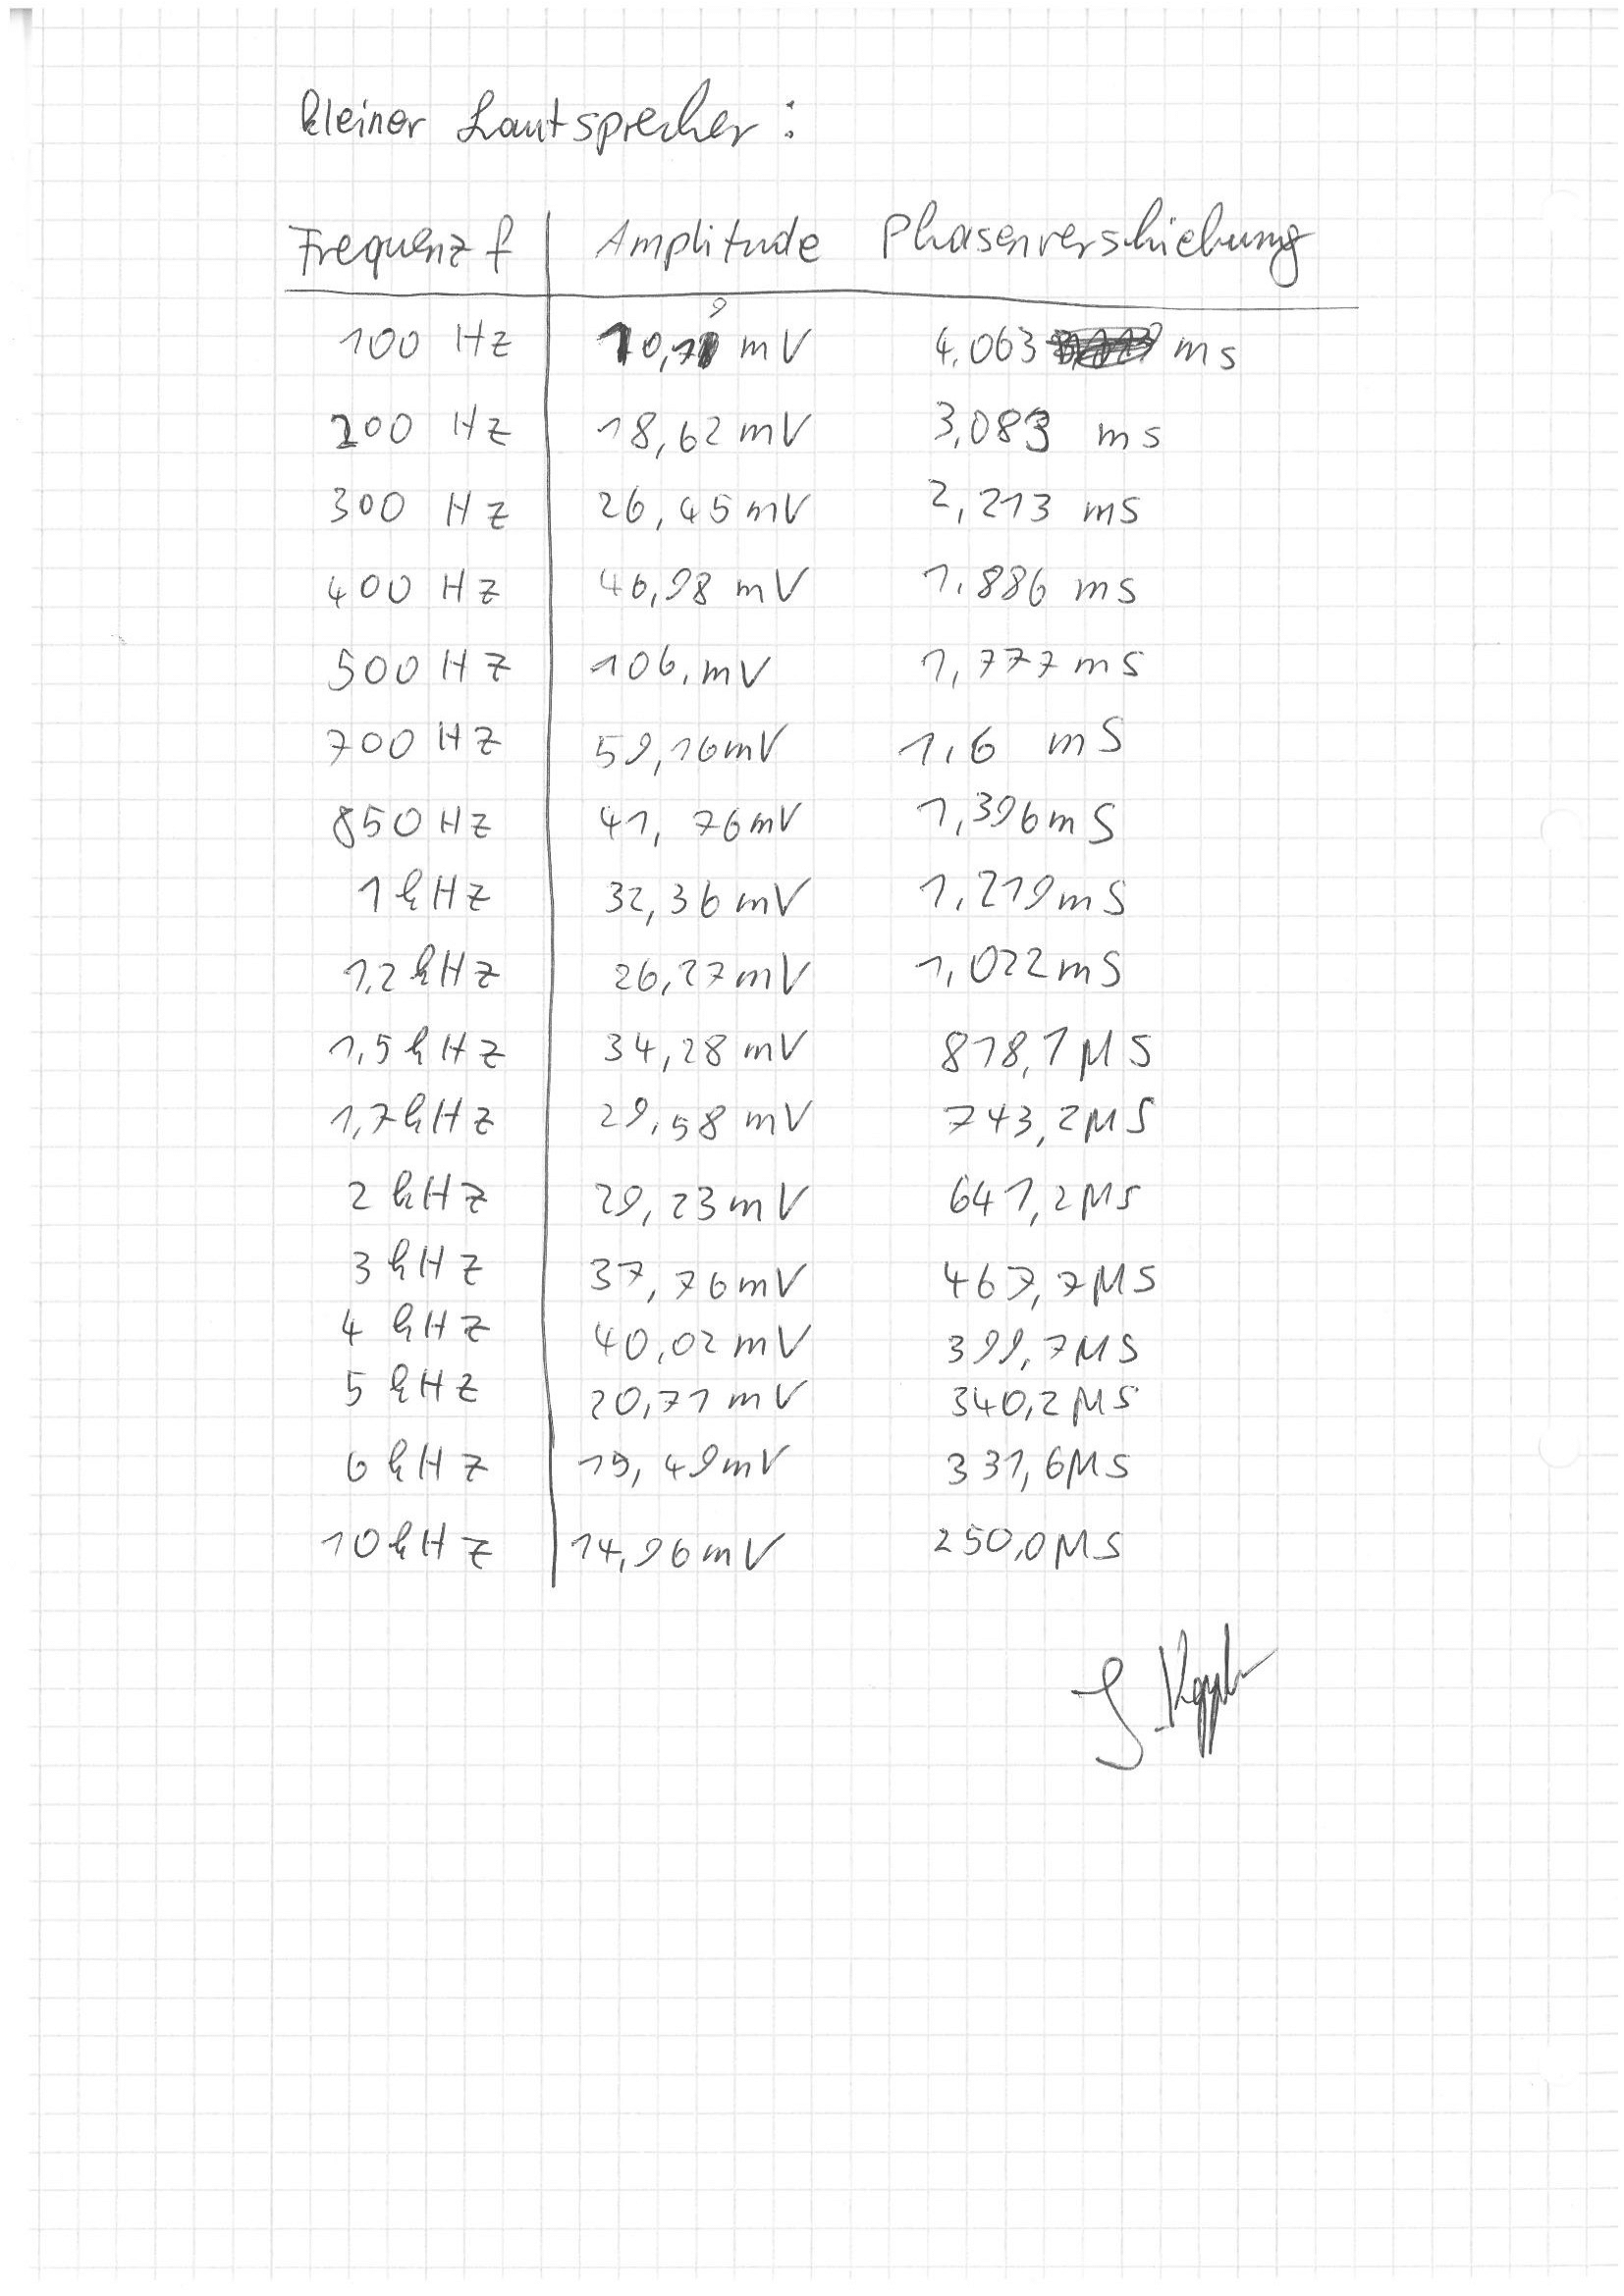 kleiner Lautsprecher:
Frequenz f Amplitude Phasenverschiebung
100 Hz 10,19 mV 4,063 ms
200 Hz 18,62 mV 3,083 ms
300 Hz 26,45 mV 2,213 ms
400 Hz 46,98 mV 1.886 ms
500 Hz 106, mV 1,777 ms
700 Hz 59,16 mV 1,6 mS
850 Hz 41,76 mV 1,396 mS
1 kHz 32,36 mV 1,219 mS
1,2 kHz 26,27 mV 1,022 mS
1,5 kHz 34,28 mV 818,1 µS
1,7 kHz 29,58 mV 743,2 µS
2 kHz 29,23 mV 641,2 µS
3 kHz 37,76 mV 467,7 µS
4 kHz 40,02 mV 399,7 µS
5 kHz 20,71 mV 340,2 µS
6 kHz 19,49 mV 331,6 µS
10 kHz 14,96 mV 250,0 µS